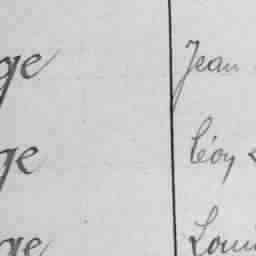 ge Jean
ge Léon
ge Loui